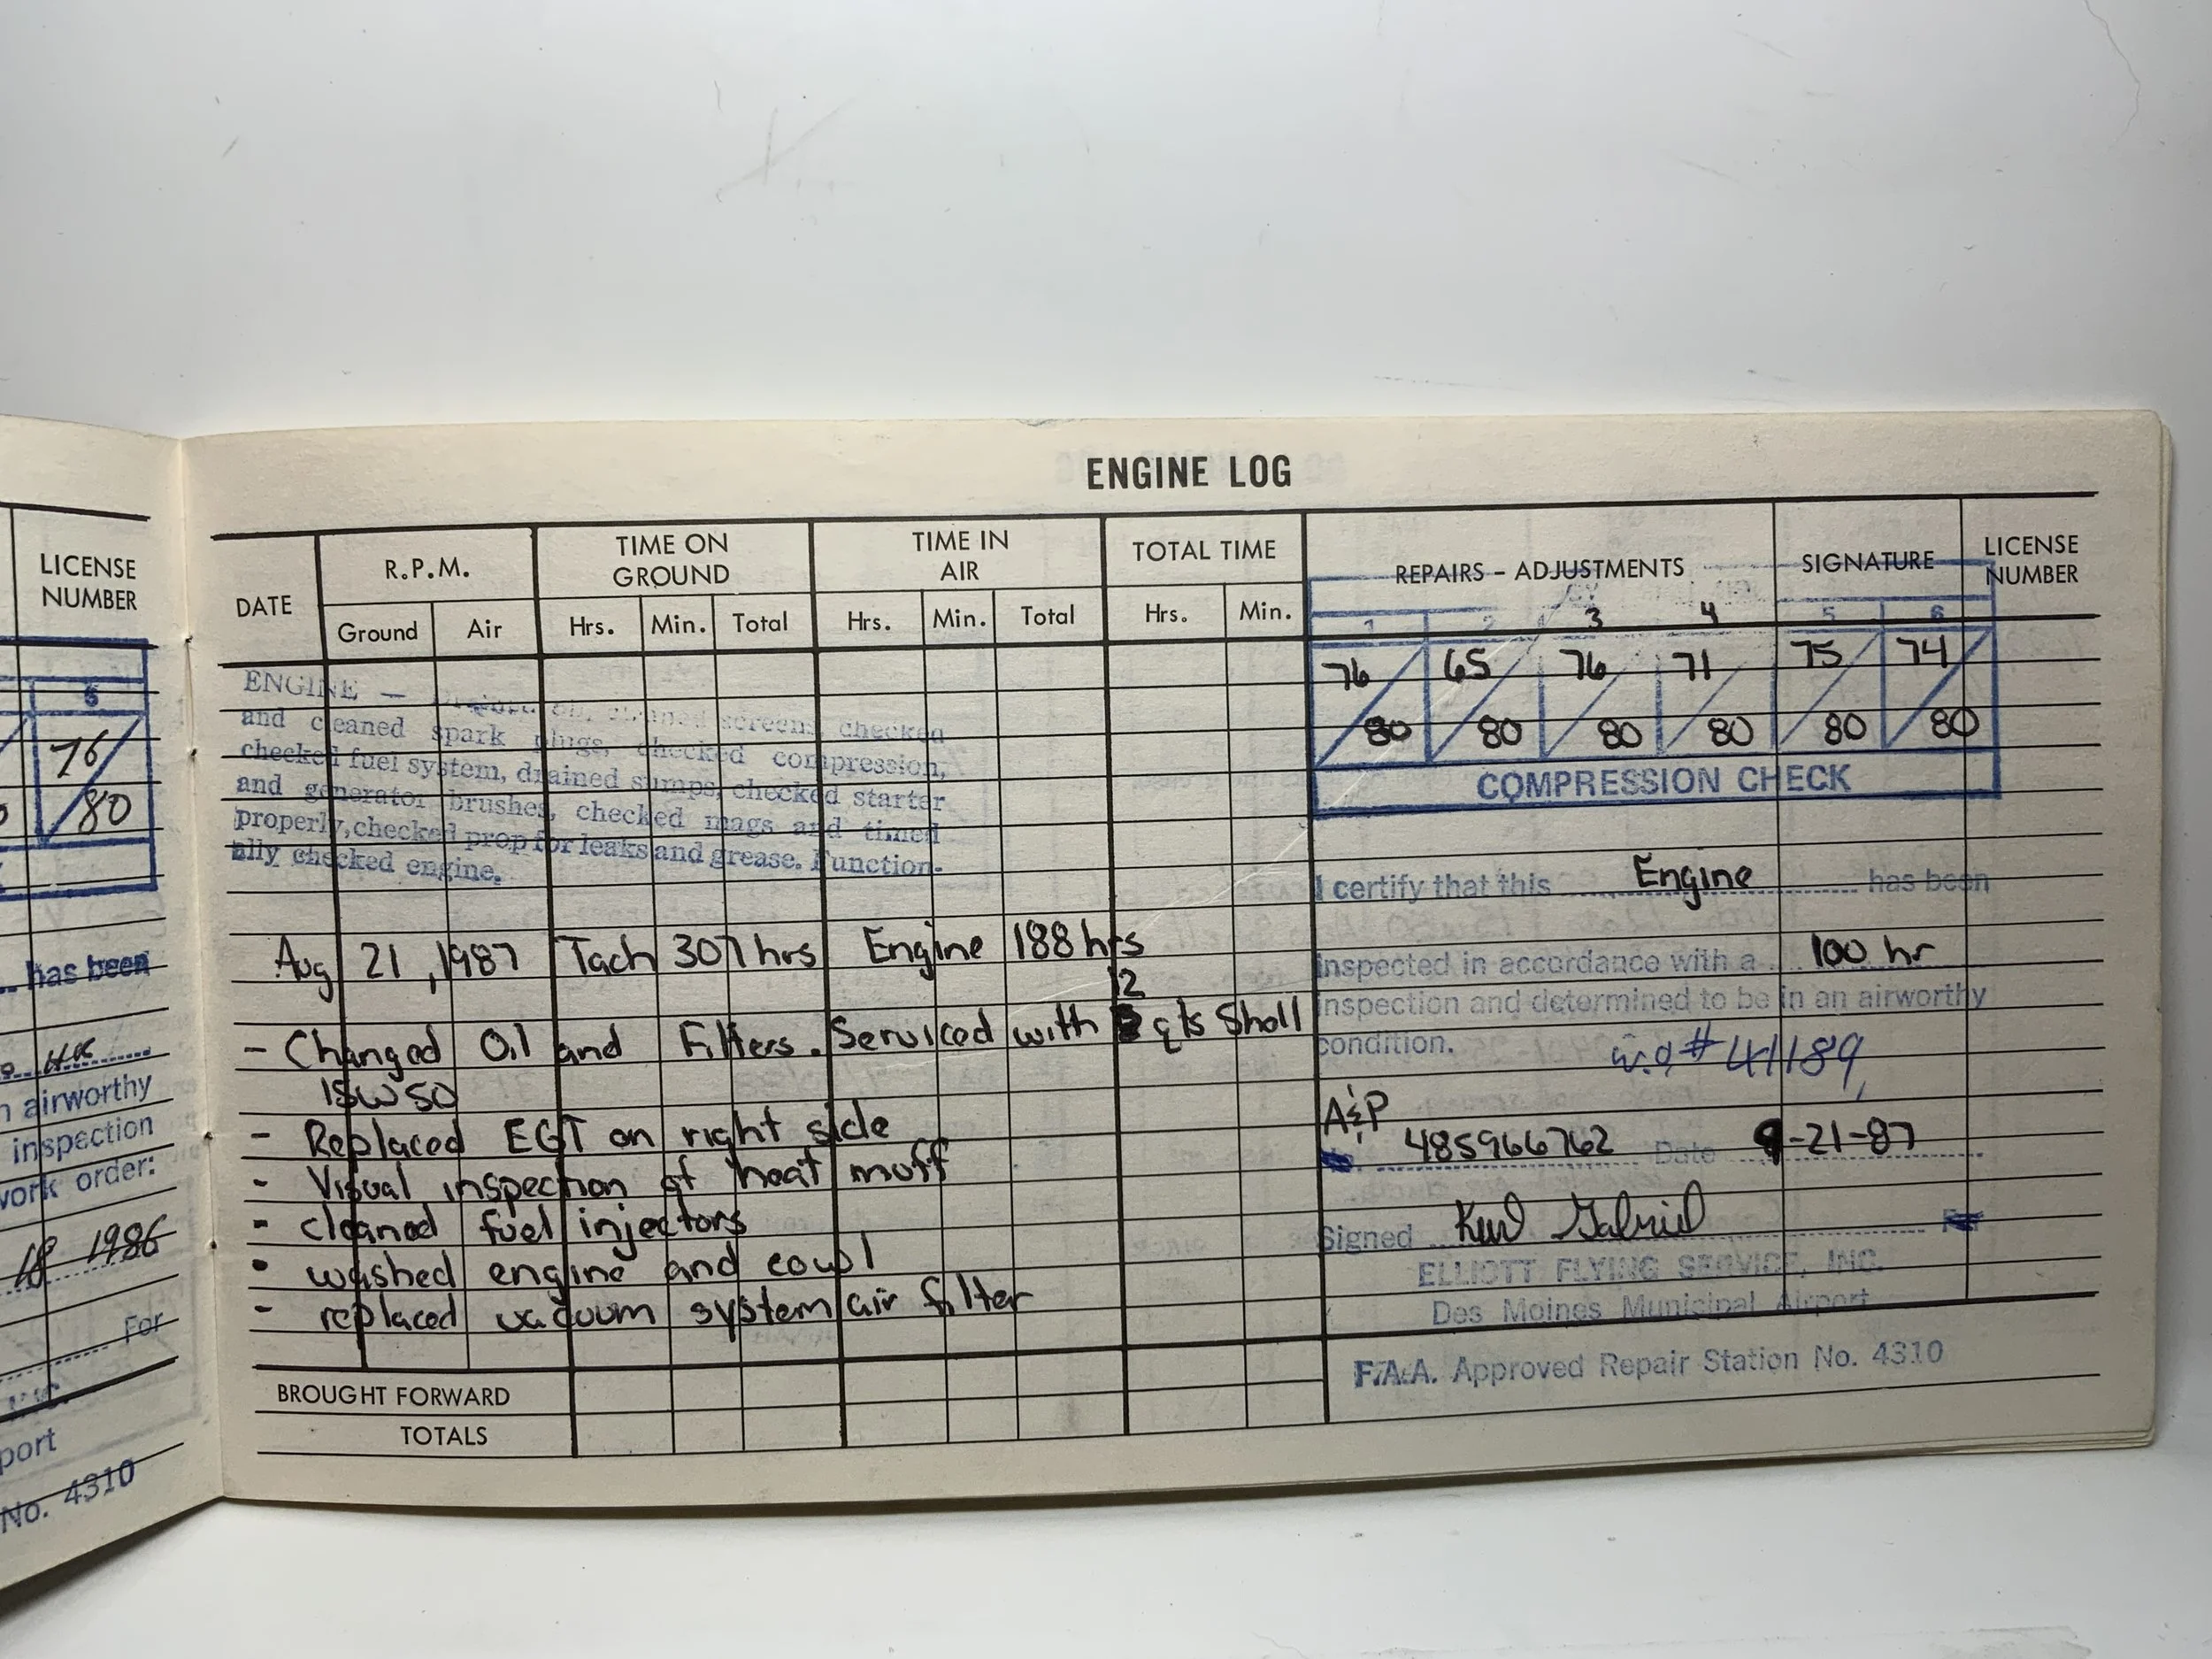 LICENSE
NUMBER
6
76
80
has been
HR
airworthy
inspection
work order:
18 1986
For
port
No. 4310
ENGINE LOG
DATE
R.P.M.
Ground Air
TIME ON
GROUND
Hrs. Min. Total
TIME IN
AIR
Hrs. Min. Total
TOTAL TIME
Hrs. Min.
REPAIRS - ADJUSTMENTS
SIGNATURE
LICENSE
NUMBER
ENGINE — oil, cleaned screens, checked
and cleaned spark plugs, checked compression,
checked fuel system, drained sumps, checked starter
and generator brushes, checked mags and timed
properly, checked prop for leaks and grease. Function-
ally checked engine.
Aug 21, 1987 Tach 307 hrs Engine 188 hrs
12
- Changed Oil and Filters. Serviced with qts Shell
15W50
- Replaced EGT on right side
- Visual inspection of heat muff
- cleaned fuel injectors
- washed engine and cowl
- replaced vacuum system air filter
BROUGHT FORWARD
TOTALS
1 2 3 4 5 6
76 65 76 71 75 74
80 80 80 80 80 80
COMPRESSION CHECK
I certify that this Engine has been
inspected in accordance with a 100 hr
inspection and determined to be in an airworthy
condition. w.o# 41189
A&P
485966762 Date -21-87
Signed Gabriel For
ELLIOTT FLYING SERVICE, INC.
Des Moines Municipal Airport
F.A.A. Approved Repair Station No. 4310